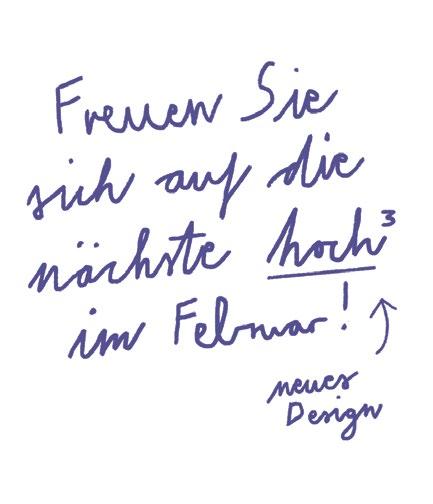 Freuen Sie
sich auf die
nächste hoch³
im Februar!
neues
Design